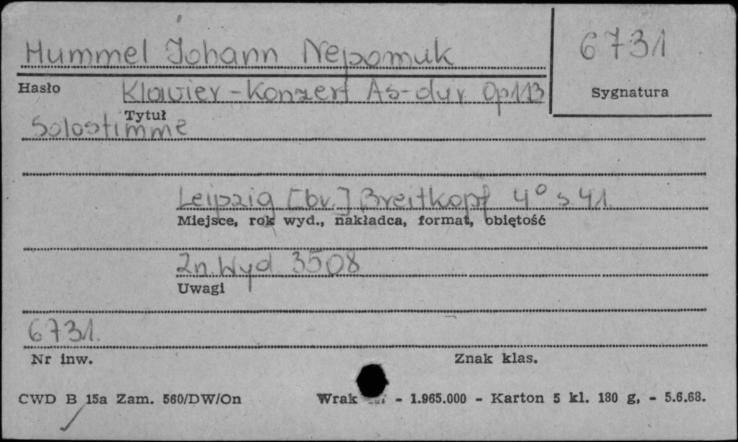 Hummel Johann Nepomuk
6731
Hasło
Sygnatura
Klavier-Konzert As-dur Op113
Tytuł
Solostimme
Leipzig [br.] Breitkopf 4° s 41.
Miejsce, rok wyd., nakładca, format, objętość
Zn. Wyd 3508
Uwagi
6731.
Nr inw.
Znak klas.
CWD B 15a Zam. 560/DW/On
Wrak - 1.965.000 - Karton 5 kl. 180 g, - 5.6.68.